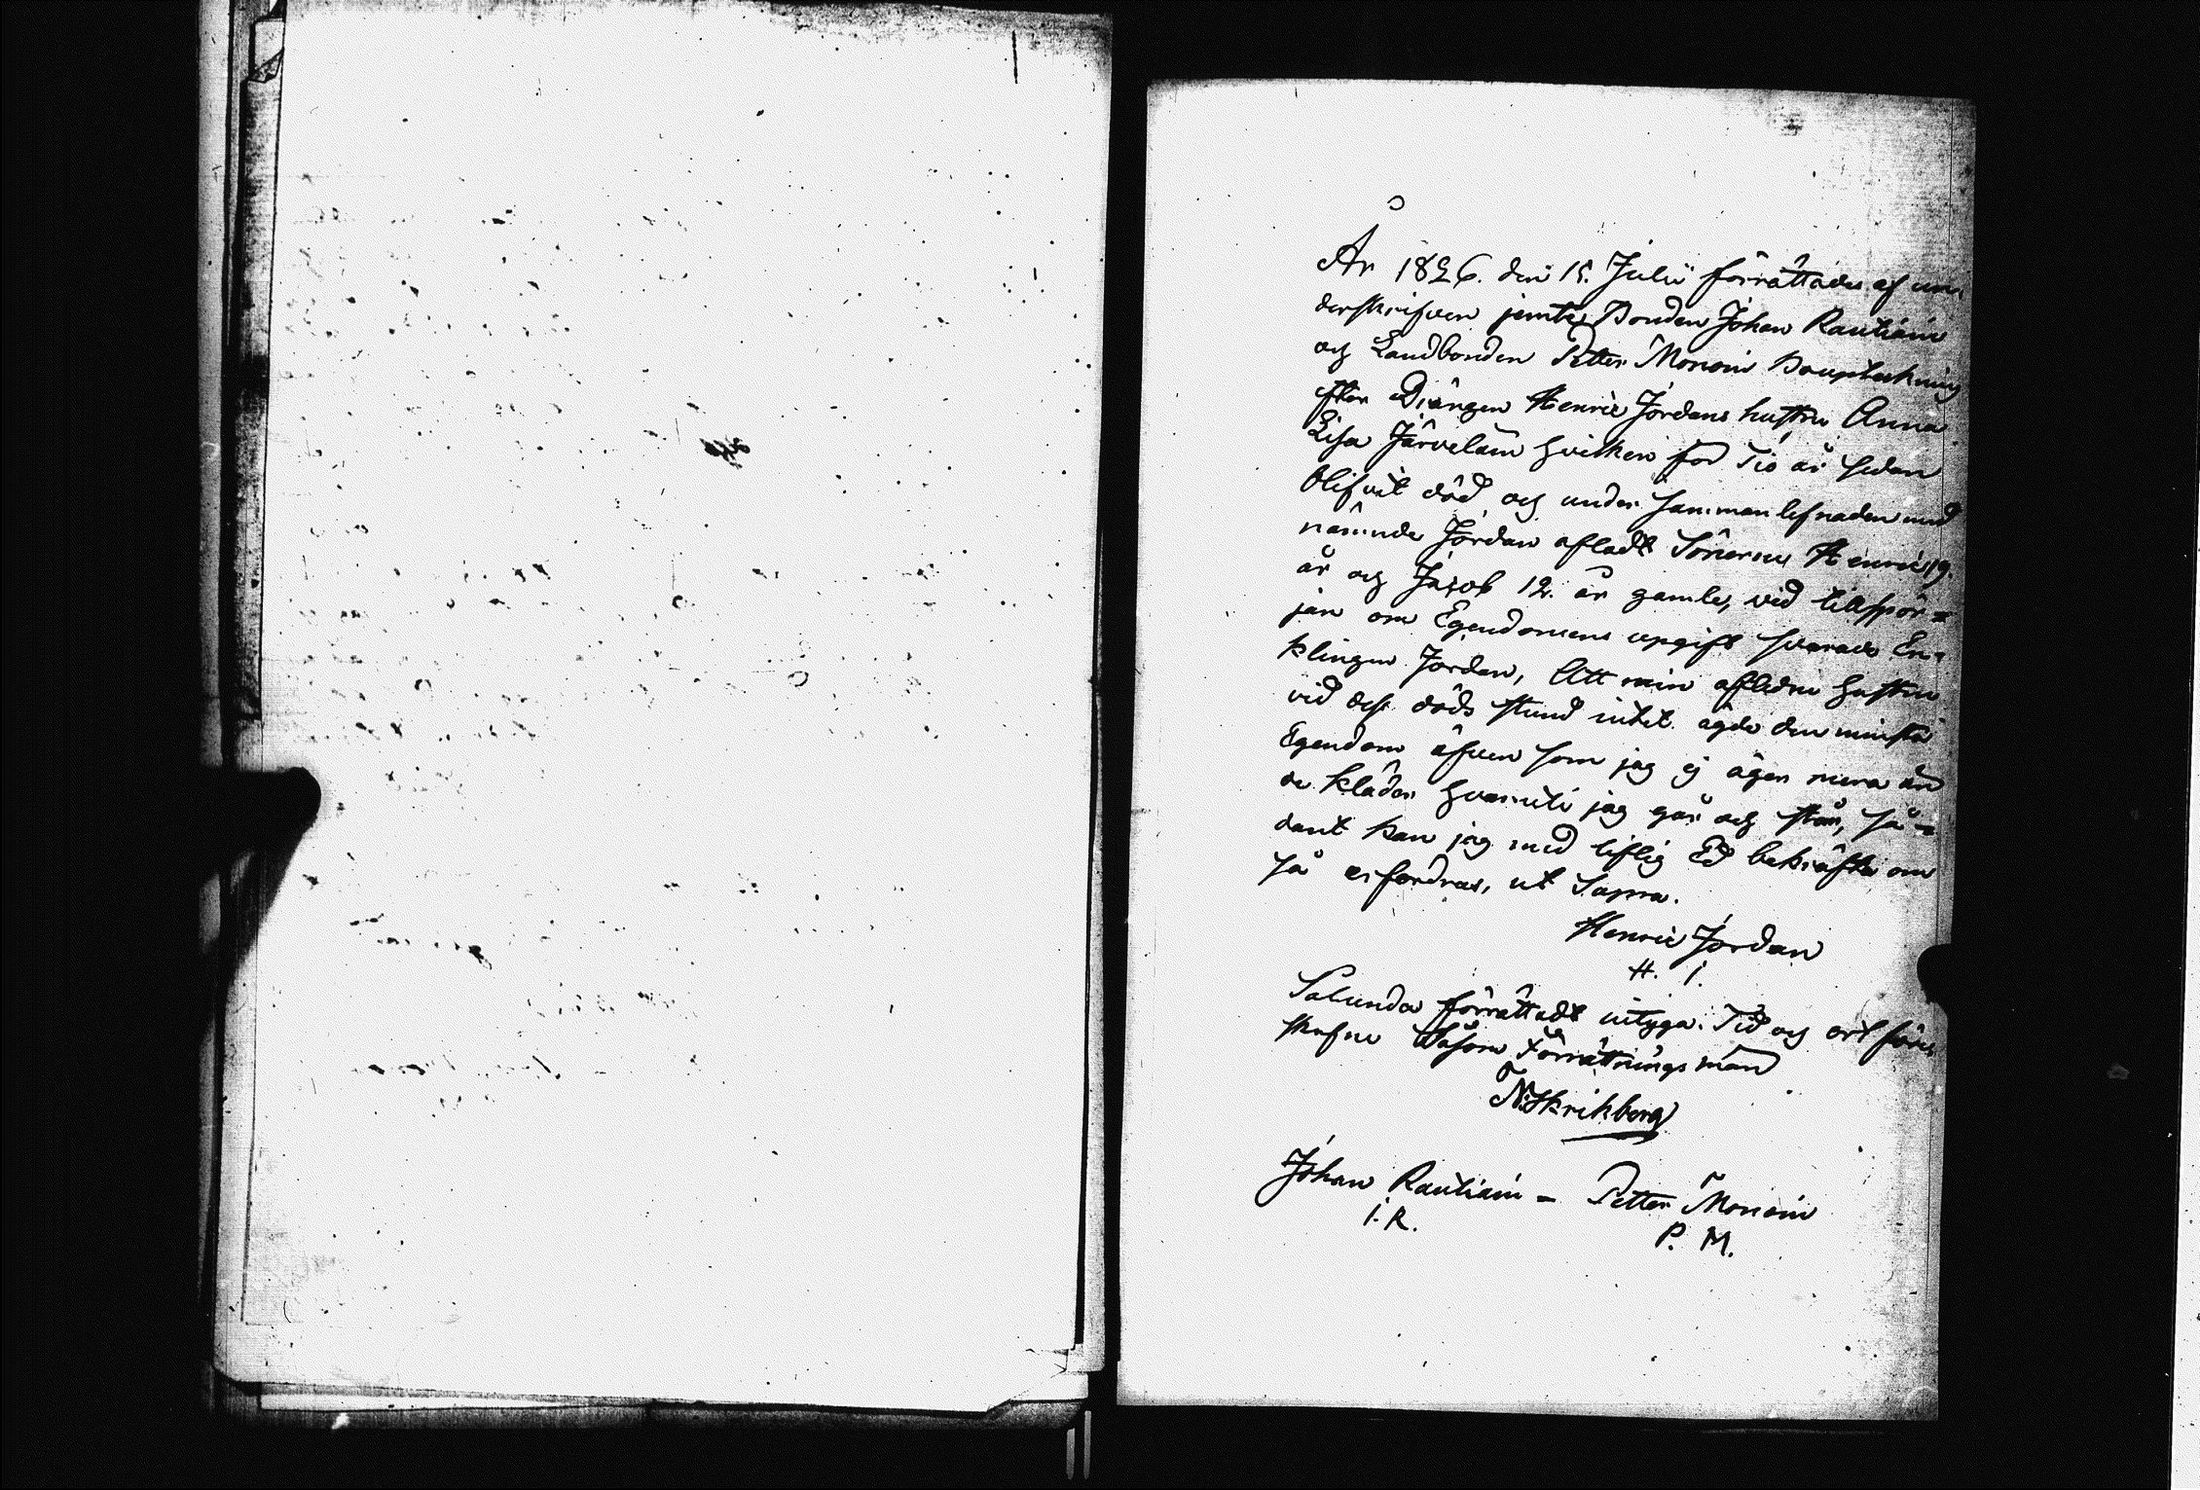 År 1826. den 15. Julii förrättades af un-
derskrifven jemte Bonden Johan Rautiain
och Landbonden Petter Monoin Bouptekning
efter Drängen Henric Jordans hustru Anna
Lisa Järveläin hvilken för Tio år sedan
blifvit död och under sammanlefnaden med
nämnde Jordan afladt Sönerne Henric 19.
år och Jacob 12. år gamle, vid tillspör=
jan om Egendomens upgift svarade En-
klingen Jordan, Att min aflidne hustru
vid dess döds stund intet ägde den minsta
Egendom äfven som jag ej äger mera än
de kläder hvaruti jag går och står, så=
dant kan jag med liflig Ed bekräfta om
så erfordras, ut Supra.
Henric Jordan
H. I.
Salunda förrättadt intyga. Tid och ortföre
skrefne Såsom Förrättnings män
N: Skrikberg
Johan Rautiain - Petter Monoin
I. R. P. M.